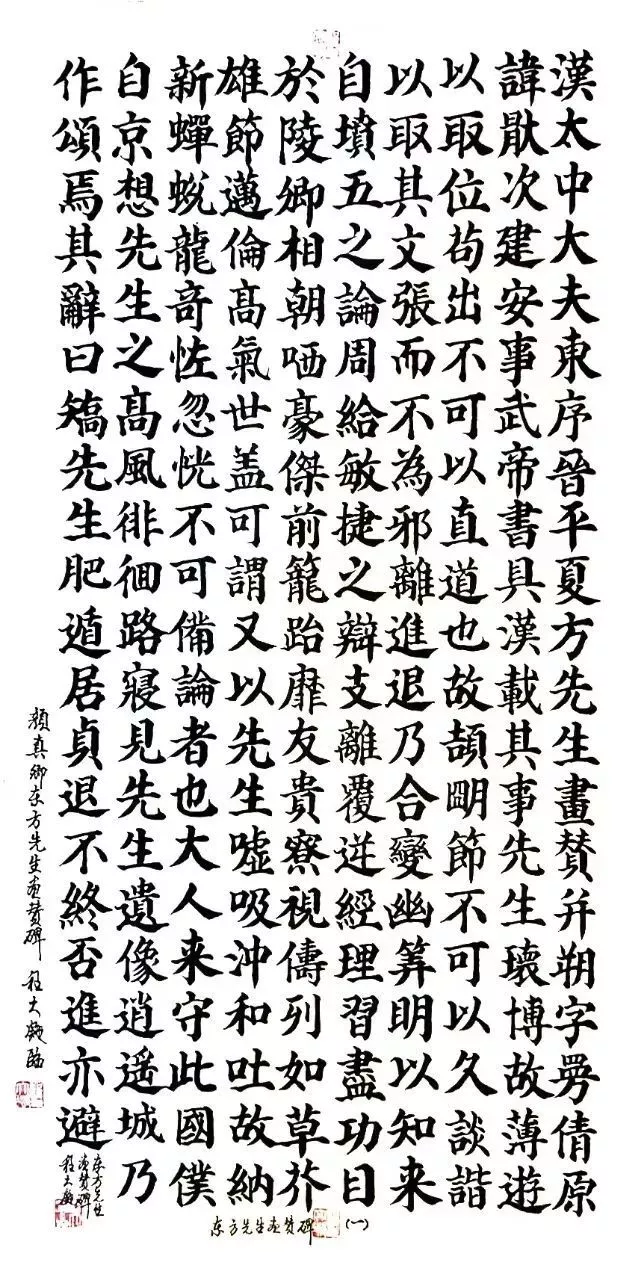 漢太中大夫東序晉平夏方先生畫贊并朔字曼倩原
諱猒次建安事武帝書具漢載其事先生瓌博故薄遊
以取位苟出不可以直道也故頡眀節不可以久談諧
以取其文張而不為邪離進退乃合變幽筭明以知来
自墳五之論周給敏捷之辯支離覆逆經理習盡功目
於陵卿相朝哂豪傑前籠跆靡友貴寮視儔列如草芥
雄節邁倫髙氣世盖可謂又以先生嘘吸沖和吐故納
新蟬蛻龍奇怪忽恍不可備論者也大人来守此國僕
自京想先生之髙風徘徊路寢見先生遺像逍遥城乃
作頌焉其辭曰矯先生肥遁居貞退不終否進亦避
东方先生
画赞碑
程大
颜真卿东方先生画赞碑 程大临
东方先生画赞碑(一)